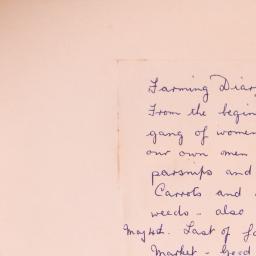 Farming Diary
From the begin
gang of women
our own men
parsnips and
Carrots and
weeds - also
May 4th. Last of
Market - Good